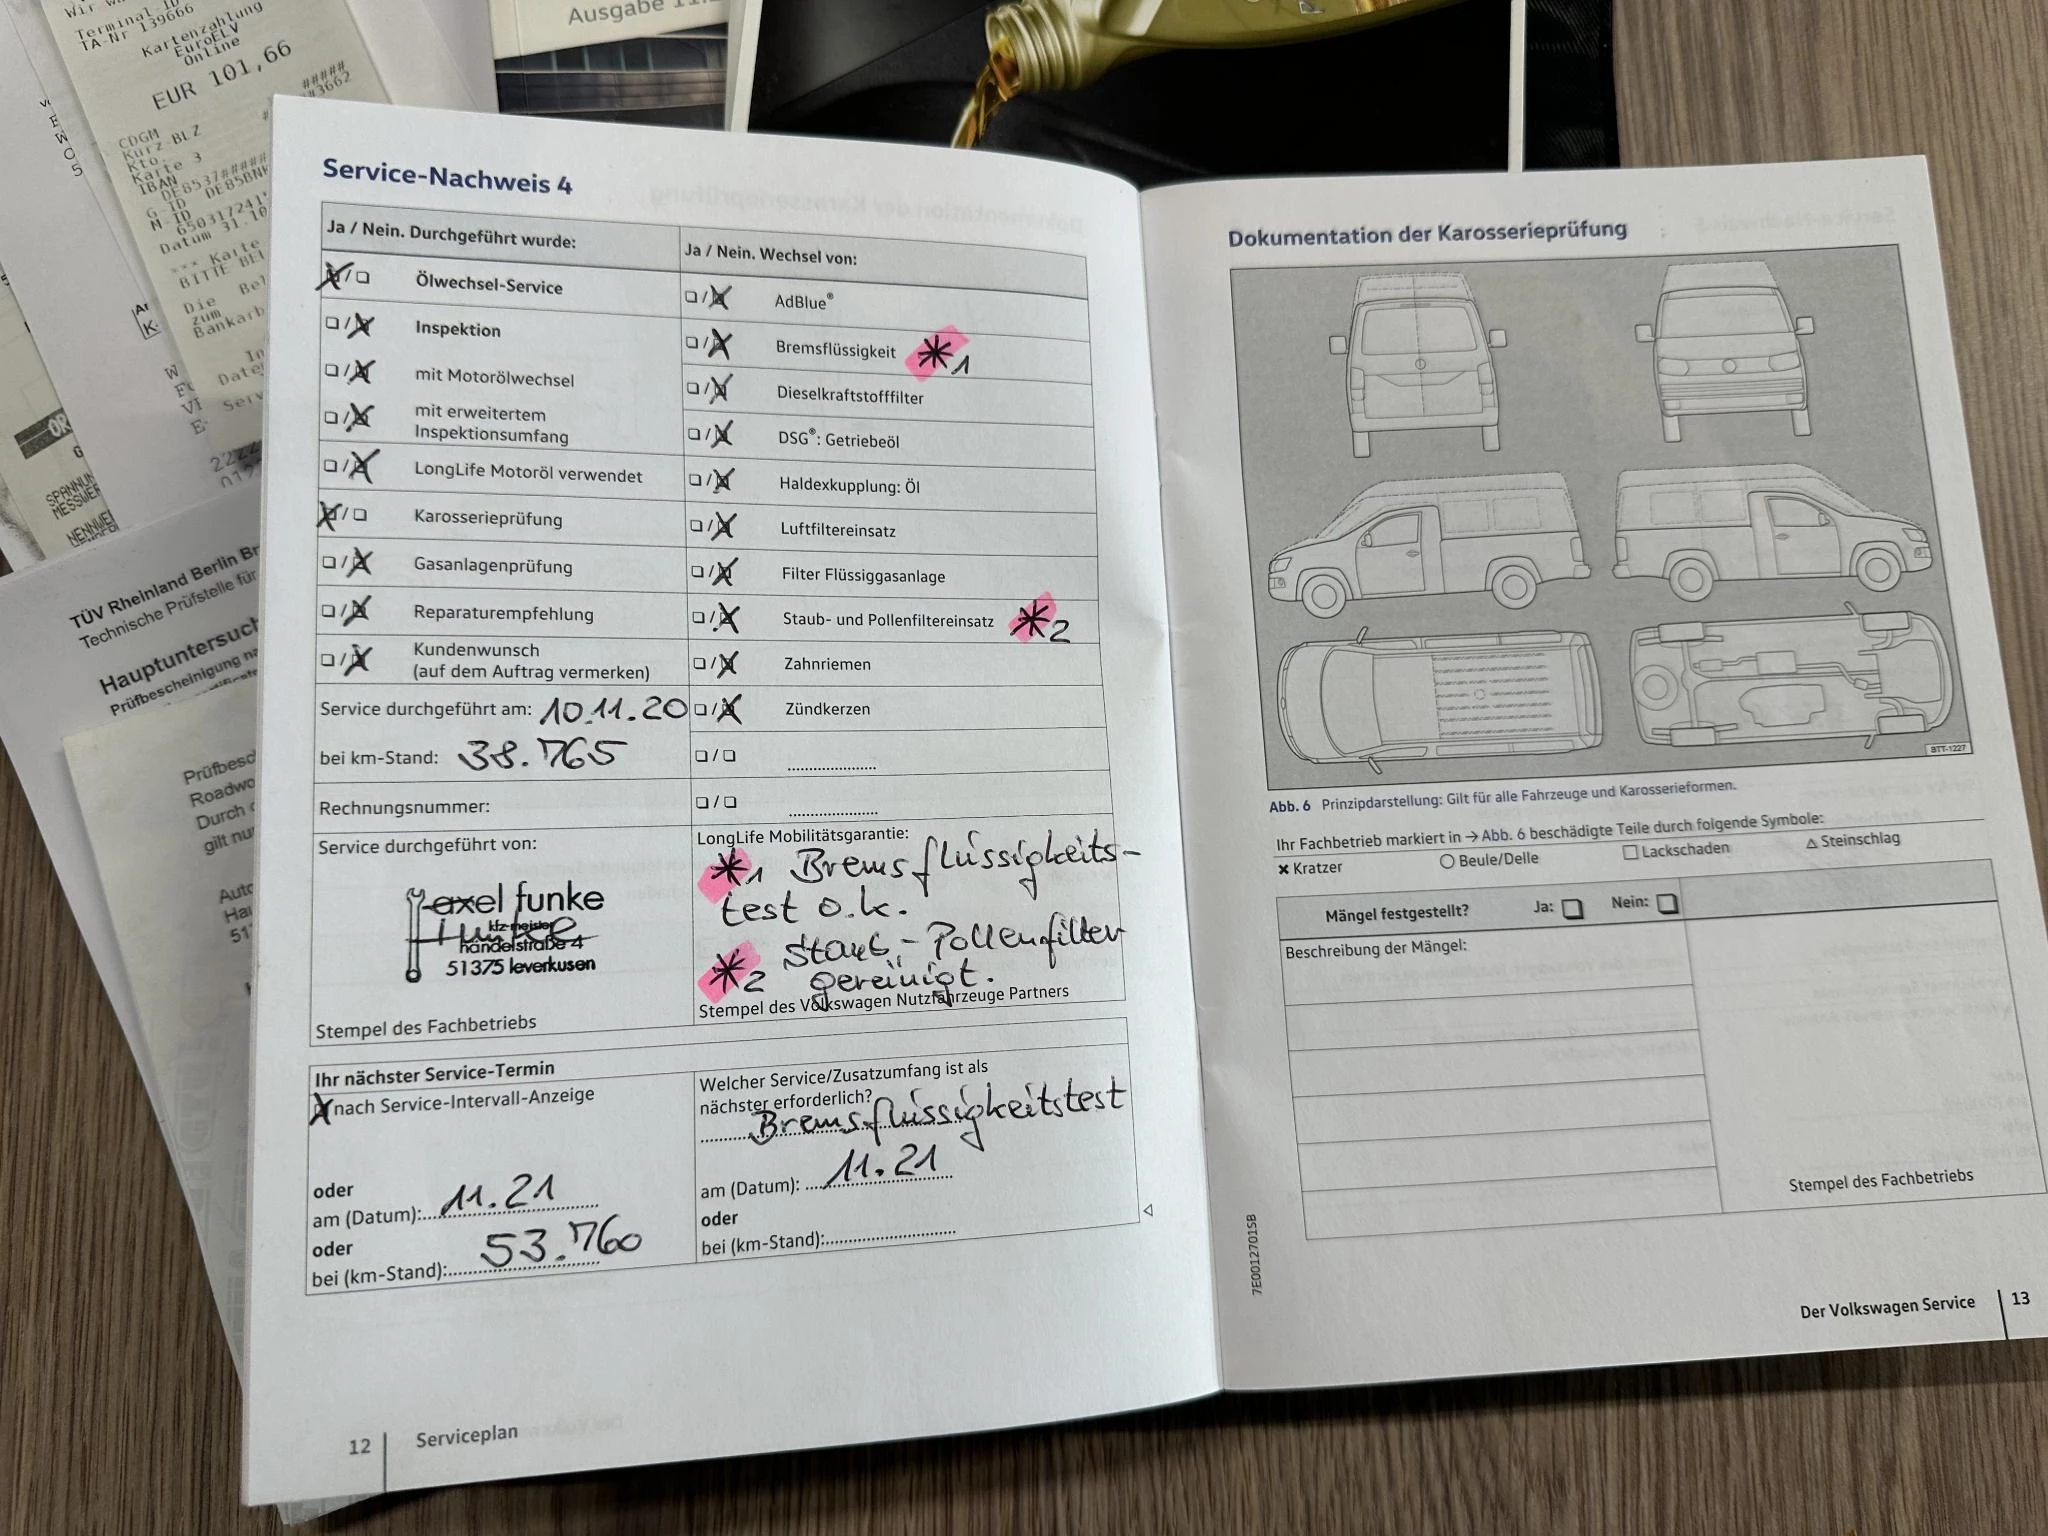 Wir
Terminal-ID
TA-Nr 139666
Kartenzahlung
EuroELV
OnLine
EUR 101,66
#####
#3662
CDGM
Kurz-BLZ
Kto.
Karte 3
IBAN
DE8537#####
G-ID DE85BNK
M-ID
65031724
Datum 31.10
*** Karte
BITTE BEL
Die Bel
zum
Bankarb
In
Date
Serv
Ausgabe 11.
TÜV Rheinland Berlin Br
Technische Prüfstelle für
Hauptuntersuch
Prüfbescheinigung na
Prüfbesc
Roadwo
Durch
gilt nur
Auto
SPANNUN
MESSWER
NENNWE
Service-Nachweis 4
Ja / Nein. Durchgeführt wurde:
Ölwechsel-Service
Inspektion
mit Motorölwechsel
mit erweitertem
Inspektionsumfang
LongLife Motoröl verwendet
Karosserieprüfung
Gasanlagenprüfung
Reparaturempfehlung
Kundenwunsch
(auf dem Auftrag vermerken)
Service durchgeführt am: 10.11.20
bei km-Stand: 38.765
Rechnungsnummer:
Service durchgeführt von:
axel funke
kfz-meister
handelstraße 4
51375 leverkusen
Stempel des Fachbetriebs
Ja / Nein. Wechsel von:
AdBlue®
Bremsflüssigkeit *1
Dieselkraftstofffilter
DSG®: Getriebeöl
Haldexkupplung: Öl
Luftfiltereinsatz
Filter Flüssiggasanlage
Staub- und Pollenfiltereinsatz *2
Zahnriemen
Zündkerzen
LongLife Mobilitätsgarantie:
*1 Bremsflüssigkeits-
test o.k.
*2 Staub-Pollenfilter
gereinigt.
Stempel des Volkswagen Nutzfahrzeuge Partners
Ihr nächster Service-Termin
nach Service-Intervall-Anzeige
oder
am (Datum): 11.21
oder
bei (km-Stand): 53.760
Welcher Service/Zusatzumfang ist als
nächster erforderlich?
Bremsflüssigkeitstest
am (Datum): 11.21
oder
bei (km-Stand):
12 Serviceplan
Dokumentation der Karosserieprüfung
BTT-1227
Abb. 6 Prinzipdarstellung: Gilt für alle Fahrzeuge und Karosserieformen.
Ihr Fachbetrieb markiert in → Abb. 6 beschädigte Teile durch folgende Symbole:
Kratzer Beule/Delle Lackschaden Steinschlag
Mängel festgestellt? Ja: Nein:
Beschreibung der Mängel:
Stempel des Fachbetriebs
7E0012701SB
Der Volkswagen Service 13